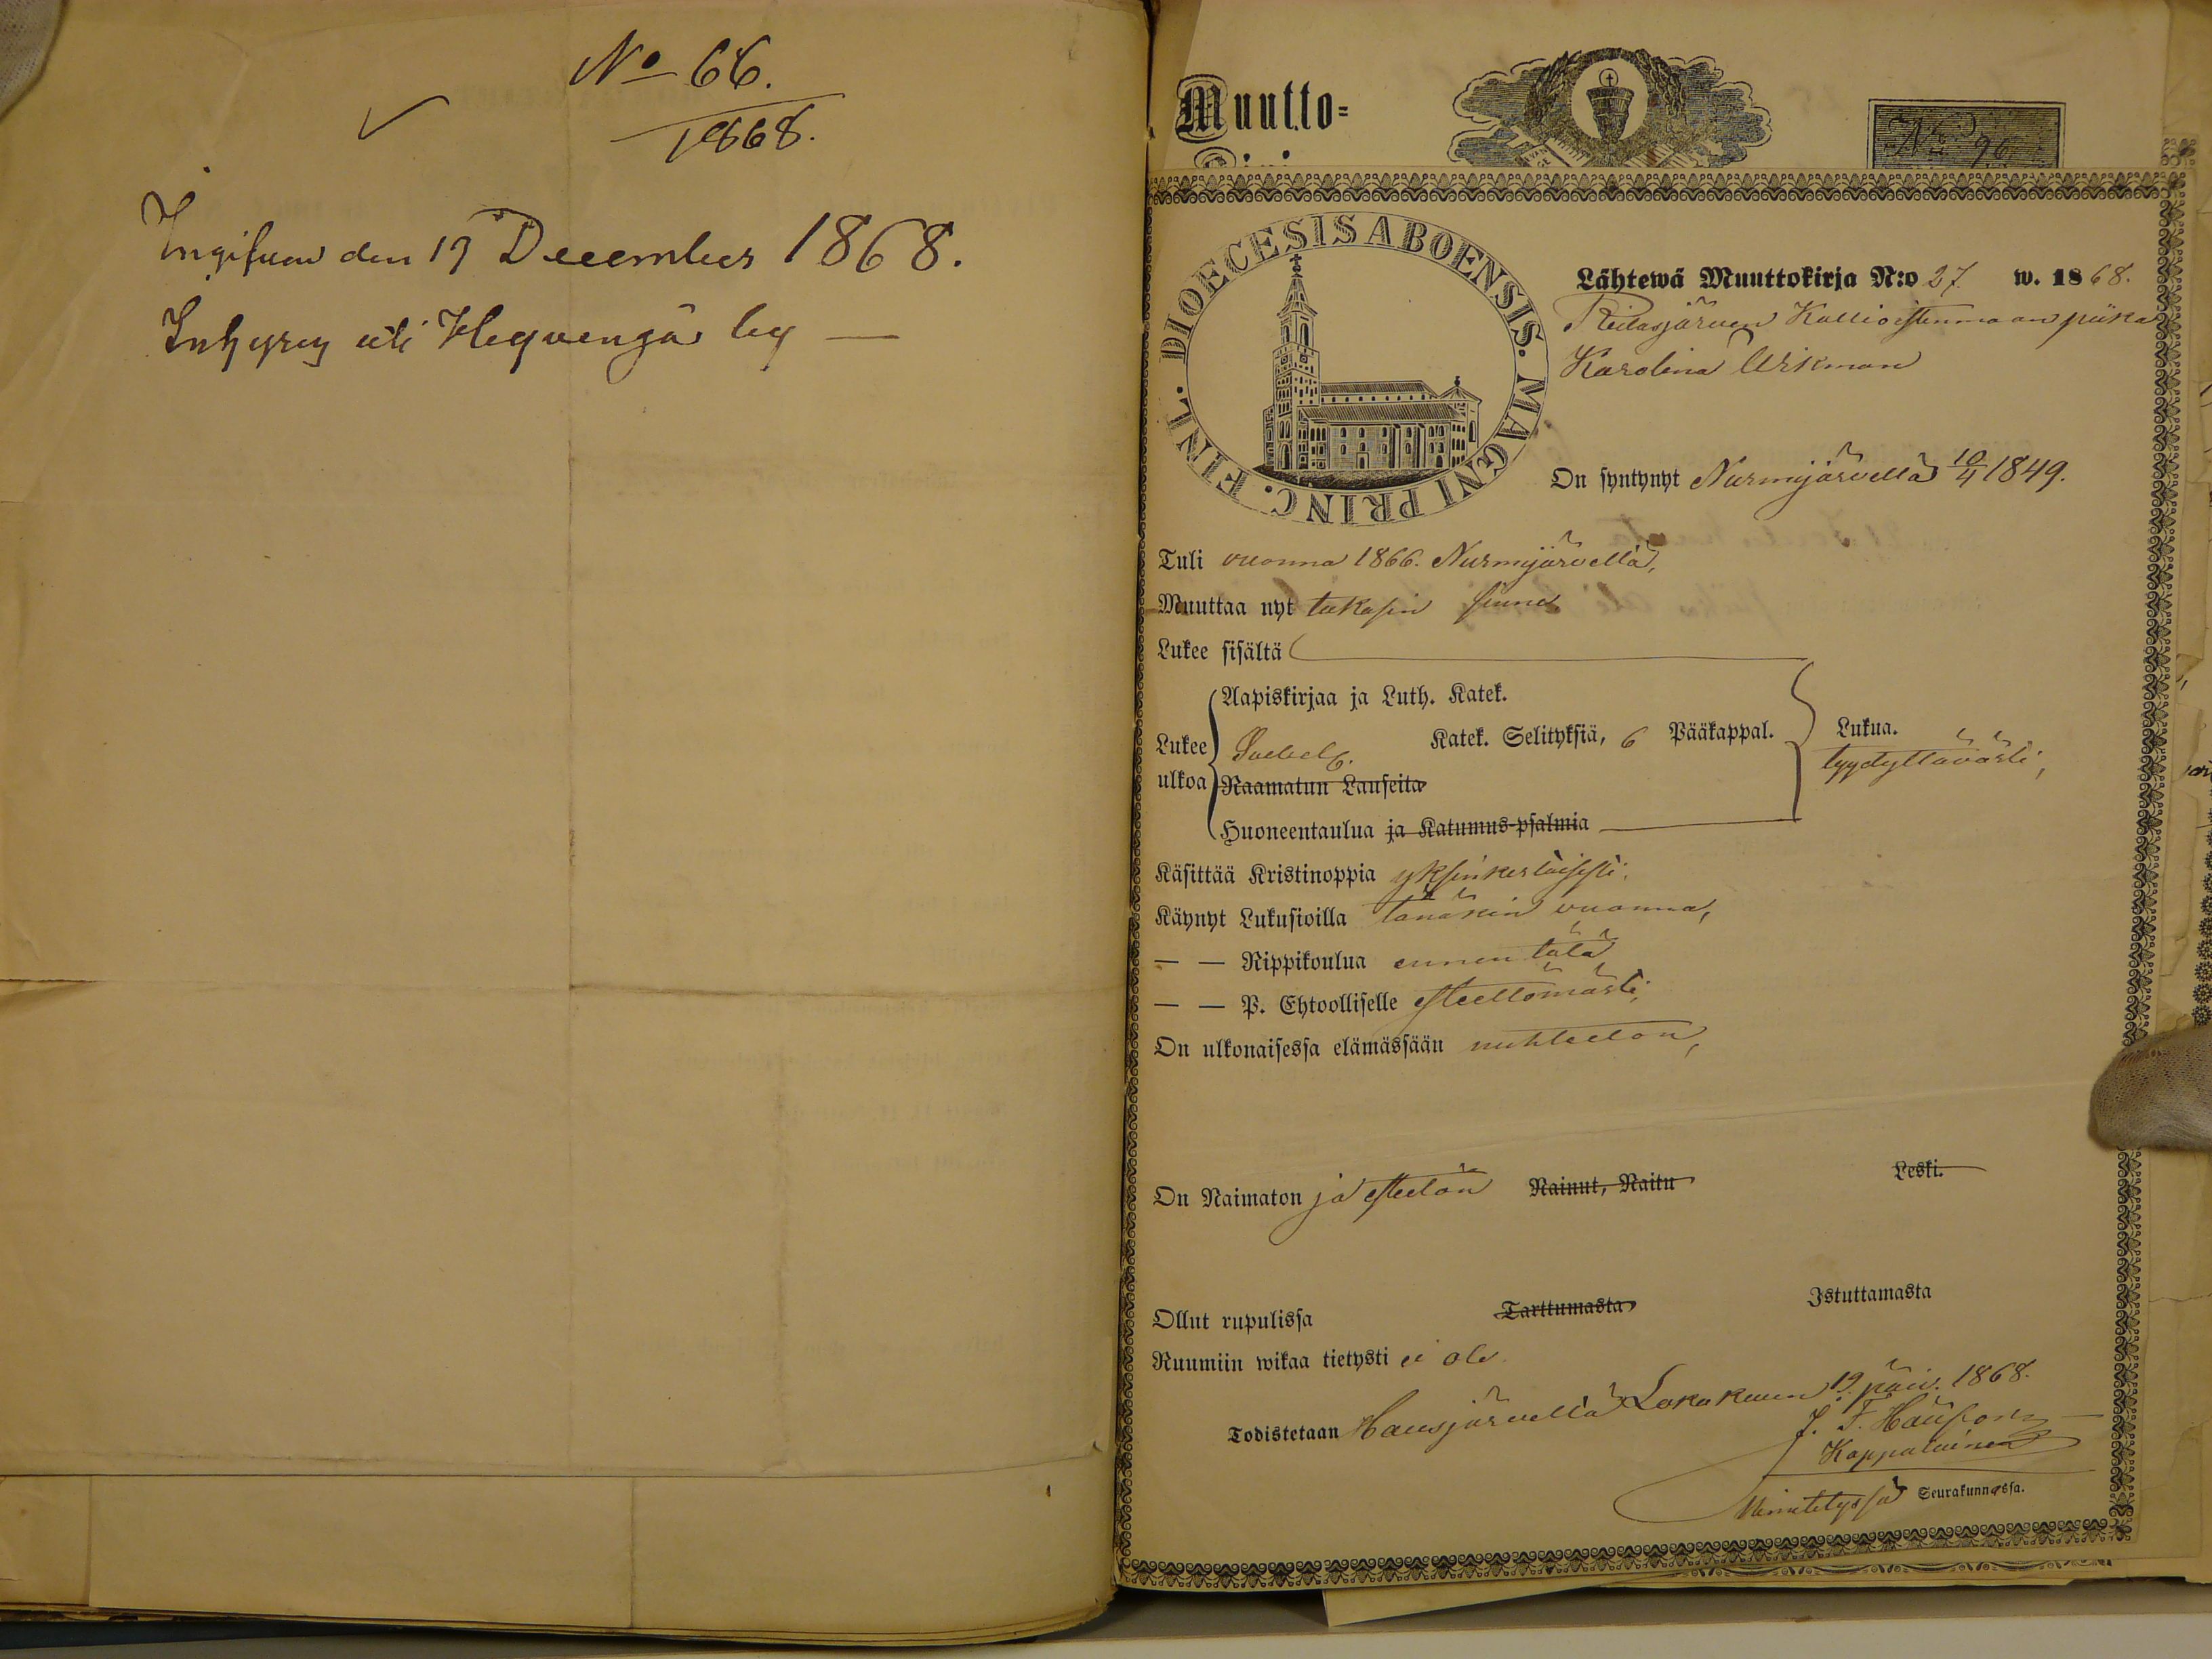 No 66.
1868.
Ingifven den 19 December 1868.
Inhyses uti Klepvenga by —
Muutto=
No 96
DIOECESIS ABOENSIS. MAGNI PRINC. FINL.
Lähtewä Muuttokirja N:o 27 w. 1868.
Ridasjärven Kallioistenmaan piika
Karolina Urkman
On syntynyt Nurmijärvellä 10/4 1849.
Tuli vuonna 1866. Nurmijärveltä,
Muuttaa nyt takasin sinne
Lukee sisältä
Aapiskirjaa ja Luth. Katek.
Lukee Svebel. Katek. Selityksiä, 6 Pääkappal. Lukua.
tyydyttävästi,
ulkoa Raamatun Lauseita
Huoneentaulua ja Katumus-psalmia
Käsittää Kristinoppia yksinkertaisesti.
Käynyt Lukusioilla tänäkin vuonna,
— — Rippikoulua ennen tätä
— — P. Ehtoolliselle esteettömästi,
On ulkonaisessa elämässään nuhteeton,
On Naimaton ja esteetön Nainut, Naitu Leski.
Ollut rupulissa Tarttumasta Istuttamasta
Ruumiin wikaa tietysti ei ole.
Todistetaan Hausjärvellä Lokakuun 19 päiv. 1868.
J. F.
Kappalainen
Nimitetyssä Seurakunnassa.